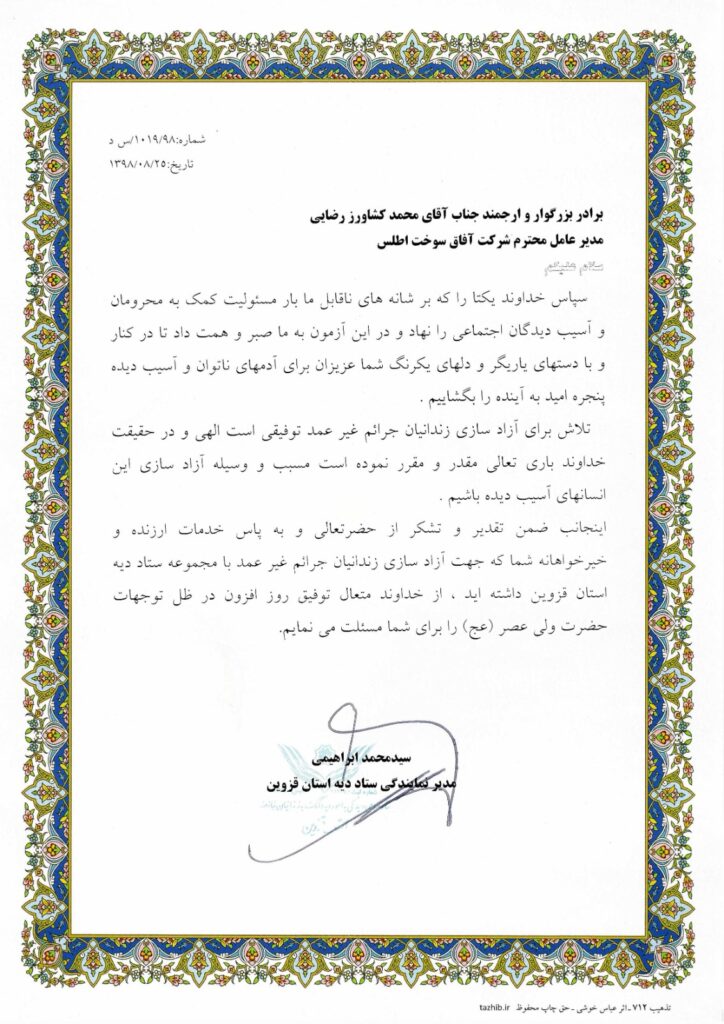 شماره:۱۰۱۹/۹۸/س د
تاریخ:۱۳۹۸/۰۸/۲۵
برادر بزرگوار و ارجمند جناب آقای محمد کشاورز رضایی
مدیر عامل محترم شرکت آفاق سوخت اطلس
سلام علیکم
سپاس خداوند یکتا را که بر شانه های ناقابل ما بار مسئولیت کمک به محرومان
و آسیب دیدگان اجتماعی را نهاد و در این آزمون به ما صبر و همت داد تا در کنار
و با دستهای یاریگر و دلهای یکرنگ شما عزیزان برای آدمهای ناتوان و آسیب دیده
پنجره امید به آینده را بگشاییم .
تلاش برای آزاد سازی زندانیان جرائم غیر عمد توفیقی است الهی و در حقیقت
خداوند باری تعالی مقدر و مقرر نموده است مسبب و وسیله آزاد سازی این
انسانهای آسیب دیده باشیم .
اینجانب ضمن تقدیر و تشکر از حضرتعالی و به پاس خدمات ارزنده و
خیرخواهانه شما که جهت آزاد سازی زندانیان جرائم غیر عمد با مجموعه ستاد دیه
استان قزوین داشته اید ، از خداوند متعال توفیق روز افزون در ظل توجهات
حضرت ولی عصر (عج) را برای شما مسئلت می نمایم.
سیدمحمد ابراهیمی
مدیر نمایندگی ستاد دیه استان قزوین
تذهیب ۷۱۲ ـ اثر عباس خوشی ـ حق چاپ محفوظ tazhib.ir